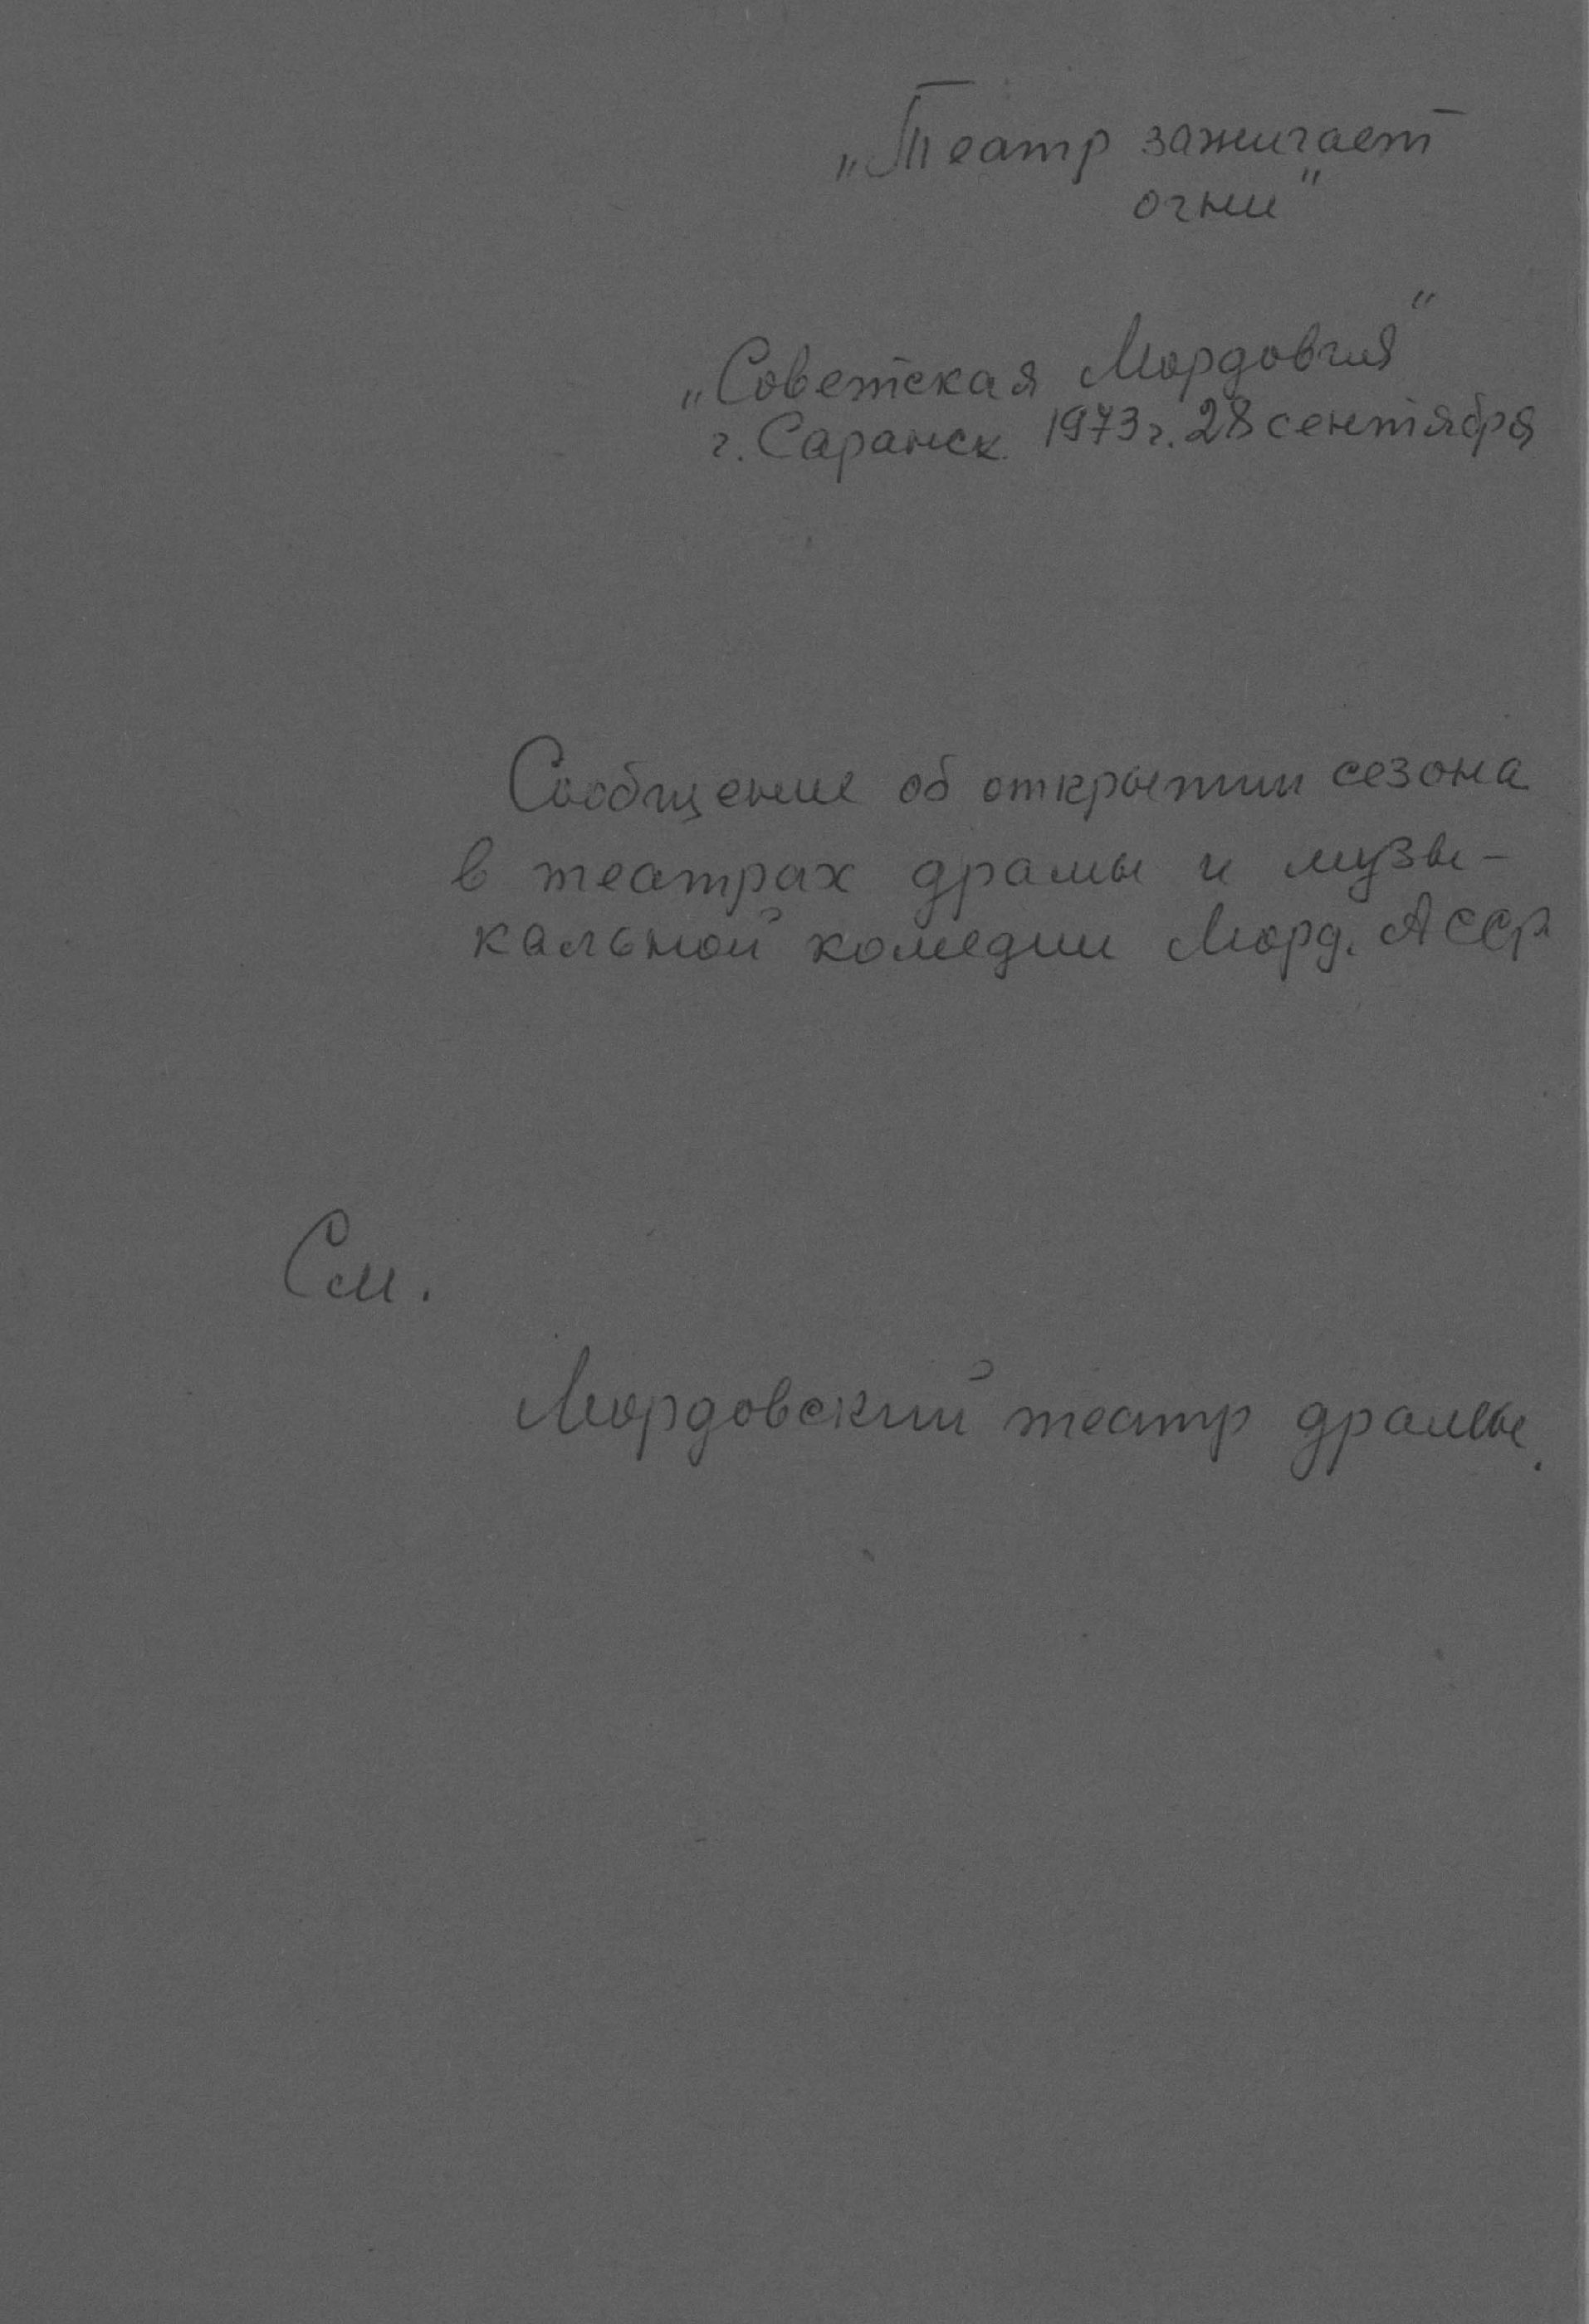 „Театр зажигает
огни"
„Советская Мордовия"
г. Саранск 1973г. 28 сентября
Сообщение об открытии сезона
в театрах драмы и музы-
кальной комедии Морд. АССР
См.
Мордовский театр драмы.